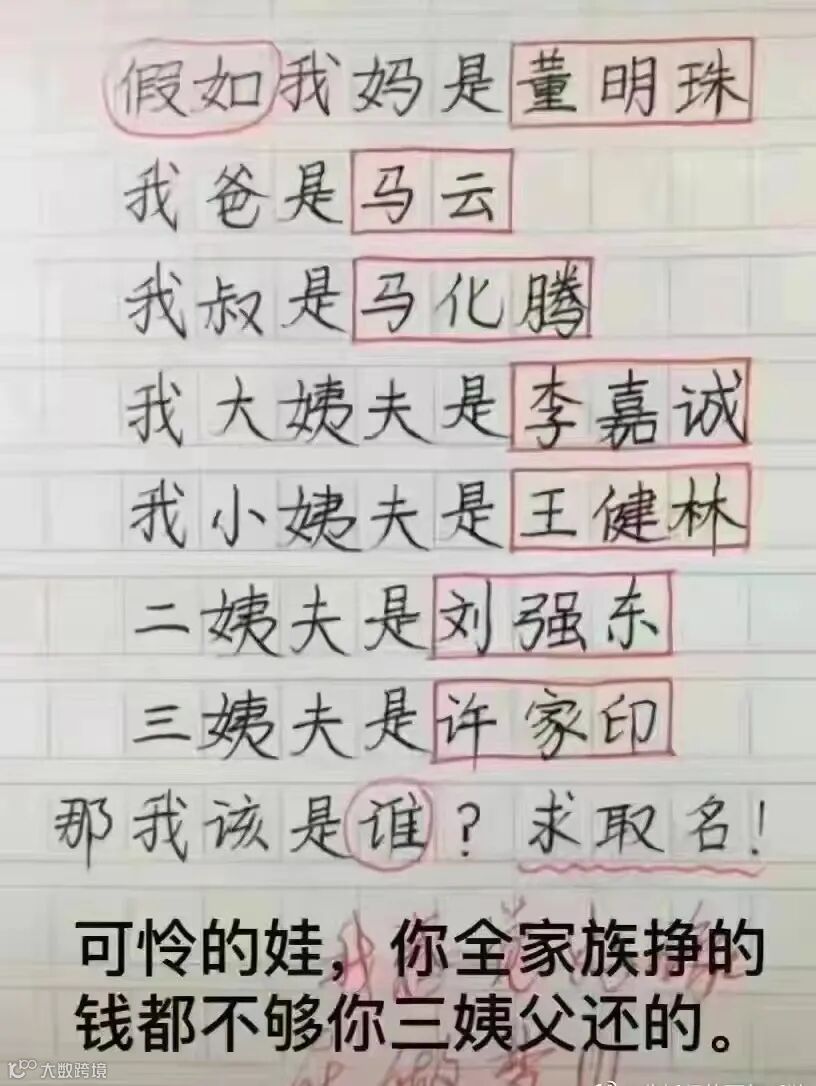 假如我妈是董明珠
我爸是马云
我叔是马化腾
我大姨夫是李嘉诚
我小姨夫是王健林
二姨夫是刘强东
三姨夫是许家印
那我该是谁？求取名！
可怜的娃，你全家族挣的
钱都不够你三姨父还的。
大数跨境